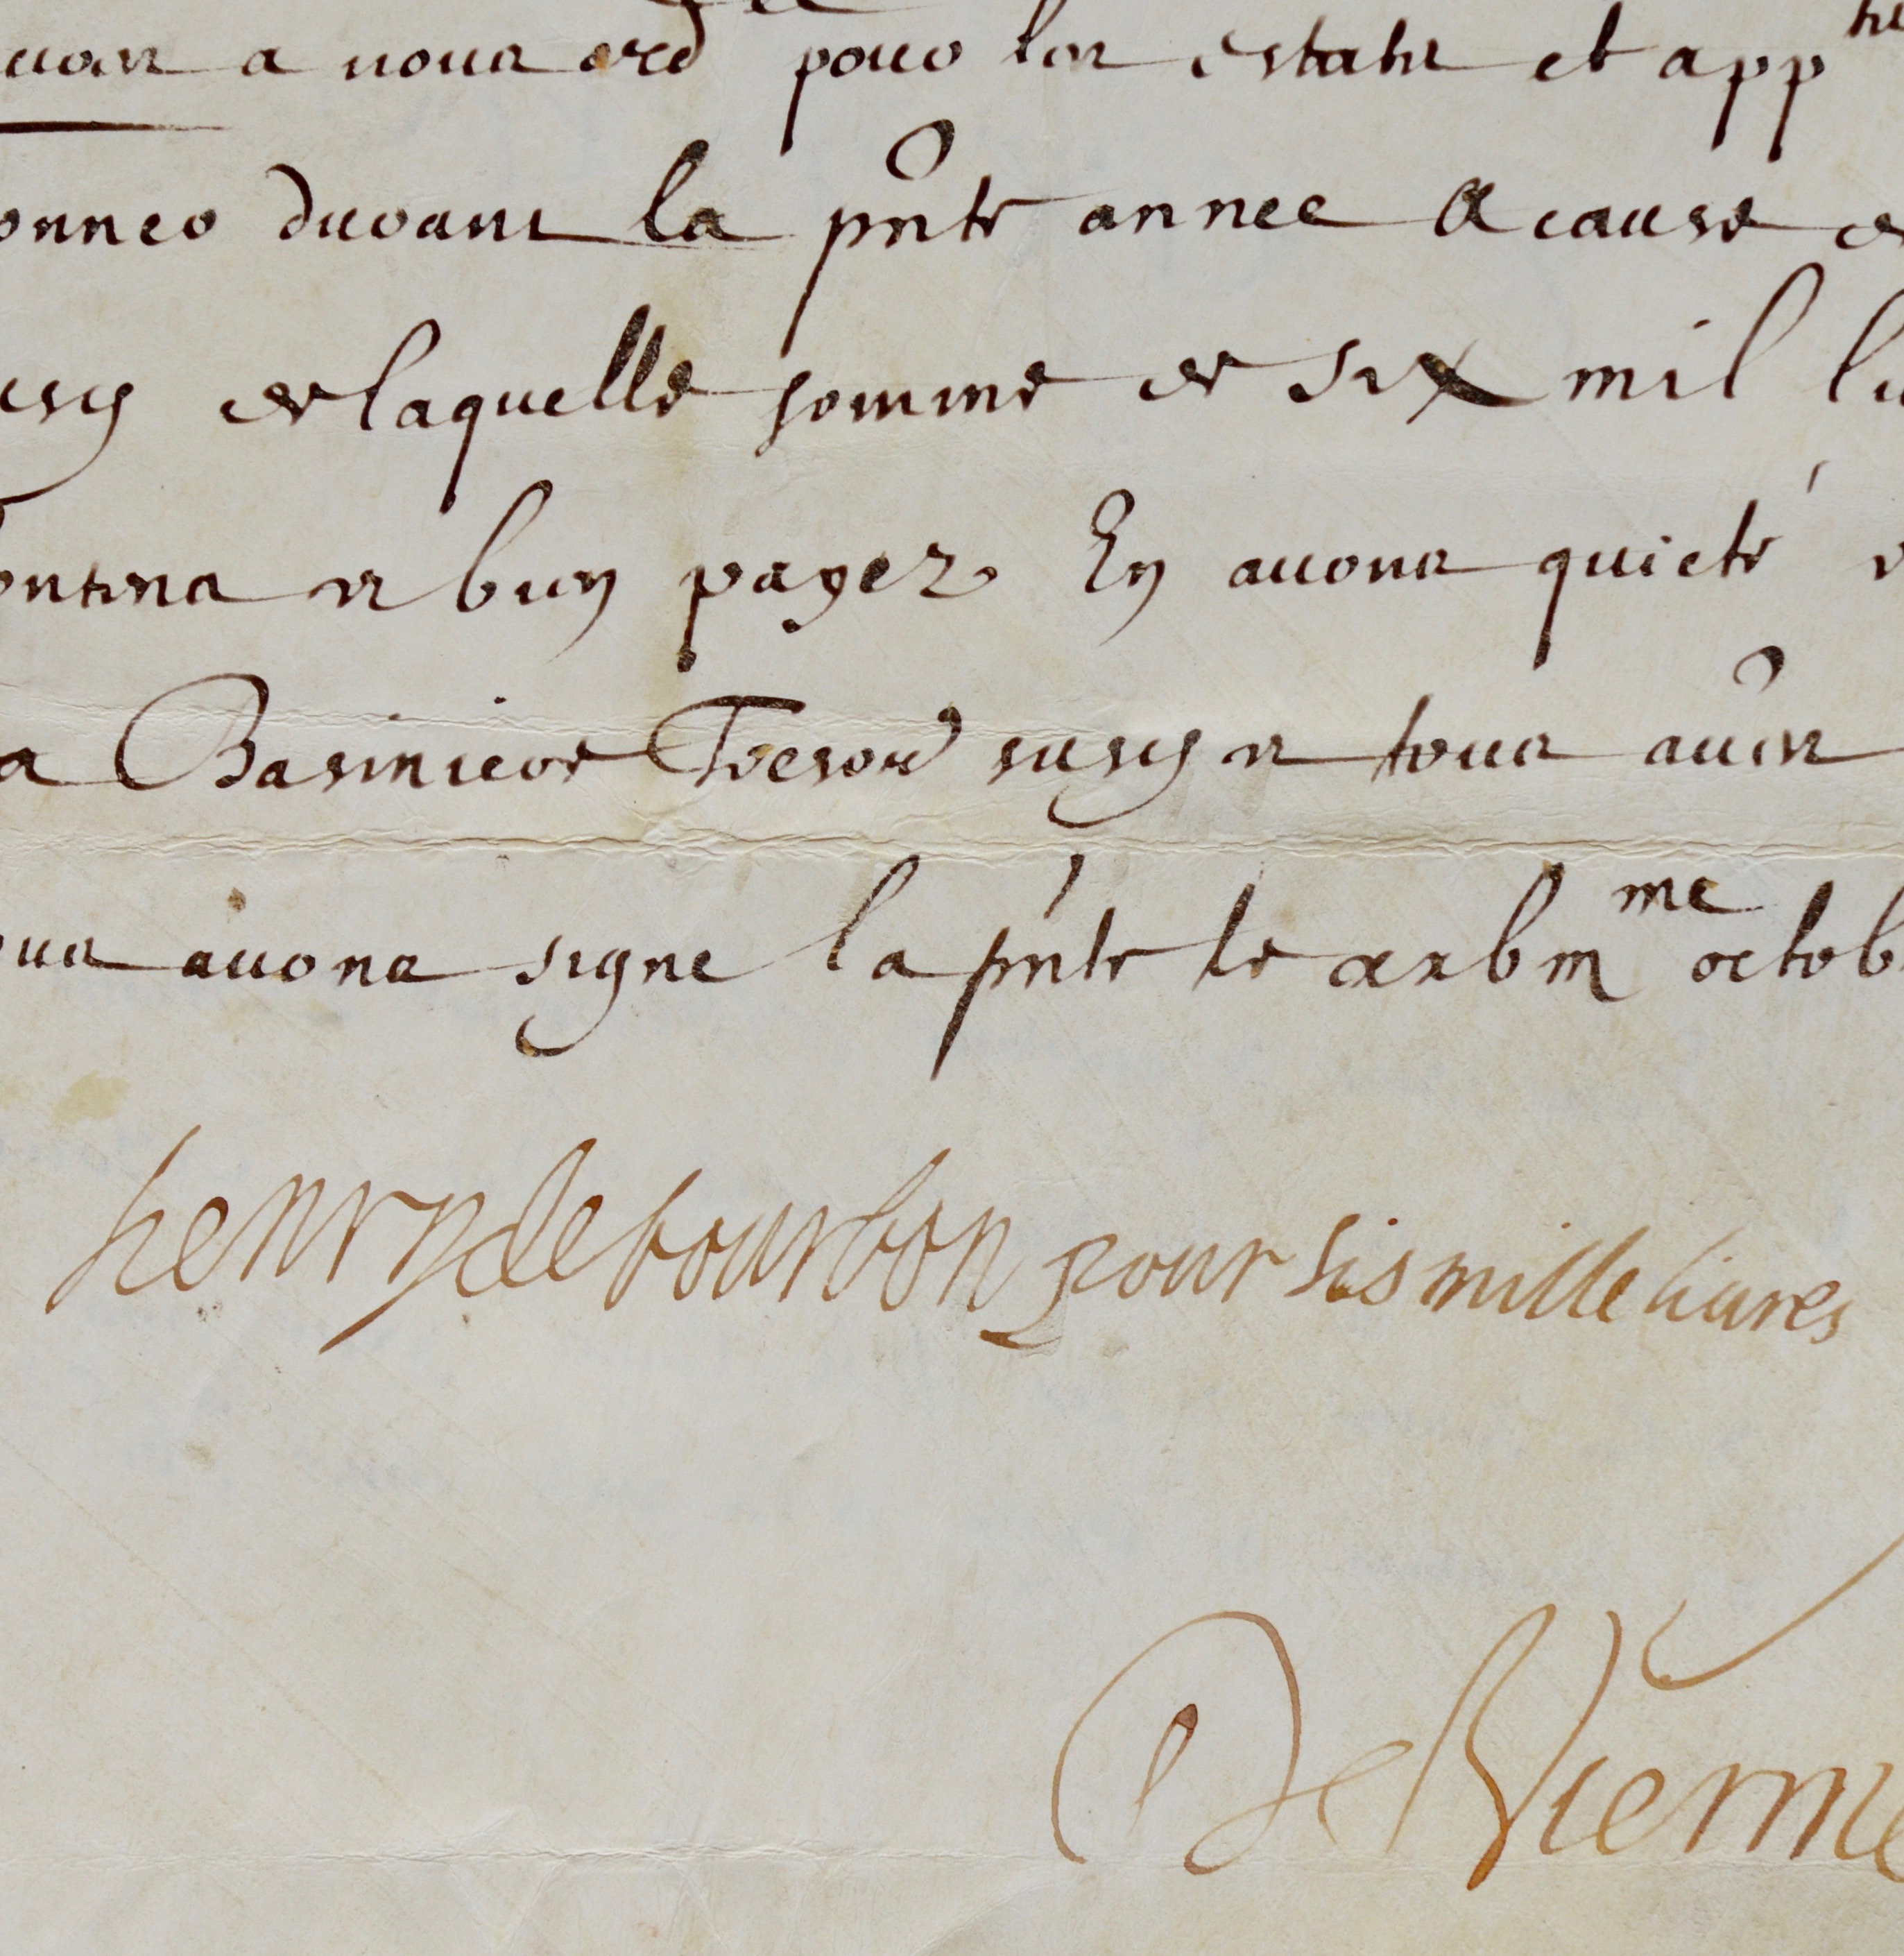 a nous ord pour les estatz et app
onner durant la pnte annee a cause de
usy de laquelle somme de six mil li
ontens et bien payez En avons quicté
a Basiniere Tresor susy et tous aues
ous avons signe la pnte le xxbm me octob
henry de bourbon pour sis mille liures